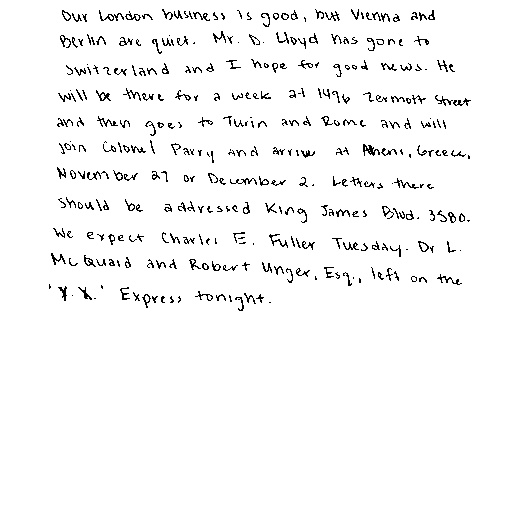 Our London business is good, but Vienna and
Berlin are quiet. Mr. D. Lloyd has gone to
Switzerland and I hope for good news. He
will be there for a week at 1496 Zermott Street
and then goes to Turin and Rome and will
join Colonel Parry and arrive at Athens, Greece,
November 27 or December 2. Letters there
should be addressed King James Blvd. 3580.
We expect Charles E. Fuller Tuesday. Dr L.
McQuaid and Robert Unger, Esq., left on the
'Y.X.' Express tonight.